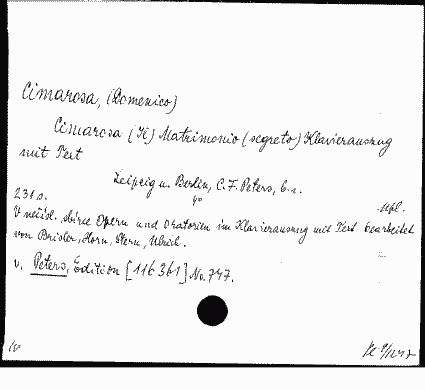 Cimarosa, (Domenico)
Cimarosa (Il) Matrimonio (segreto) Klavierauszug
mit Text
Leipzig u. Berlin, C. F. Peters, s.a.
4°
231 s.
Opern und Oratorien im Klavierauszug mit Text bearbeitet
von Brisler, Horn, Stern, Ulrich.
v. Peters, Edition [116361] No. 747.